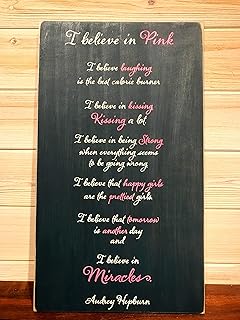 I believe in Pink
I believe laughing
is the best calorie burner
I believe in kissing
Kissing a lot
I believe in being Strong
when everything seems
to be going wrong
I believe that happy girls
are the prettiest girls
I believe that tomorrow
is another day
and
I believe in
Miracles.
Audrey Hepburn